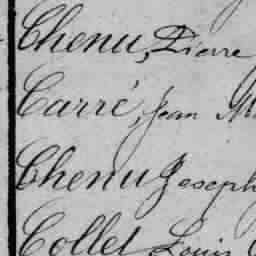 Chenu, Pierre
Carré, Jean M
Chenu Joseph
Collet Louis